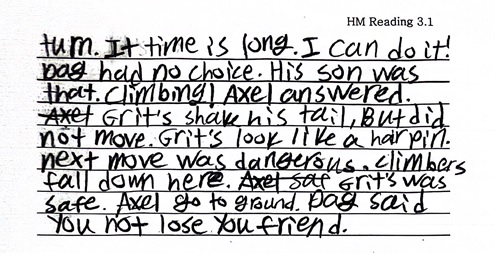 HM Reading 3.1
tum. It time is long. I can do it!
Dag had no choice. His son was
that. Climbing! Axel answered.
Axel Grit's shake his tail, But did
not move. Grit's look like a hairpin.
next move was dangerous. climbers
fall down here. Axel saf Grit's was
safe. Axel go to ground. Dag said
You not lose you friend.